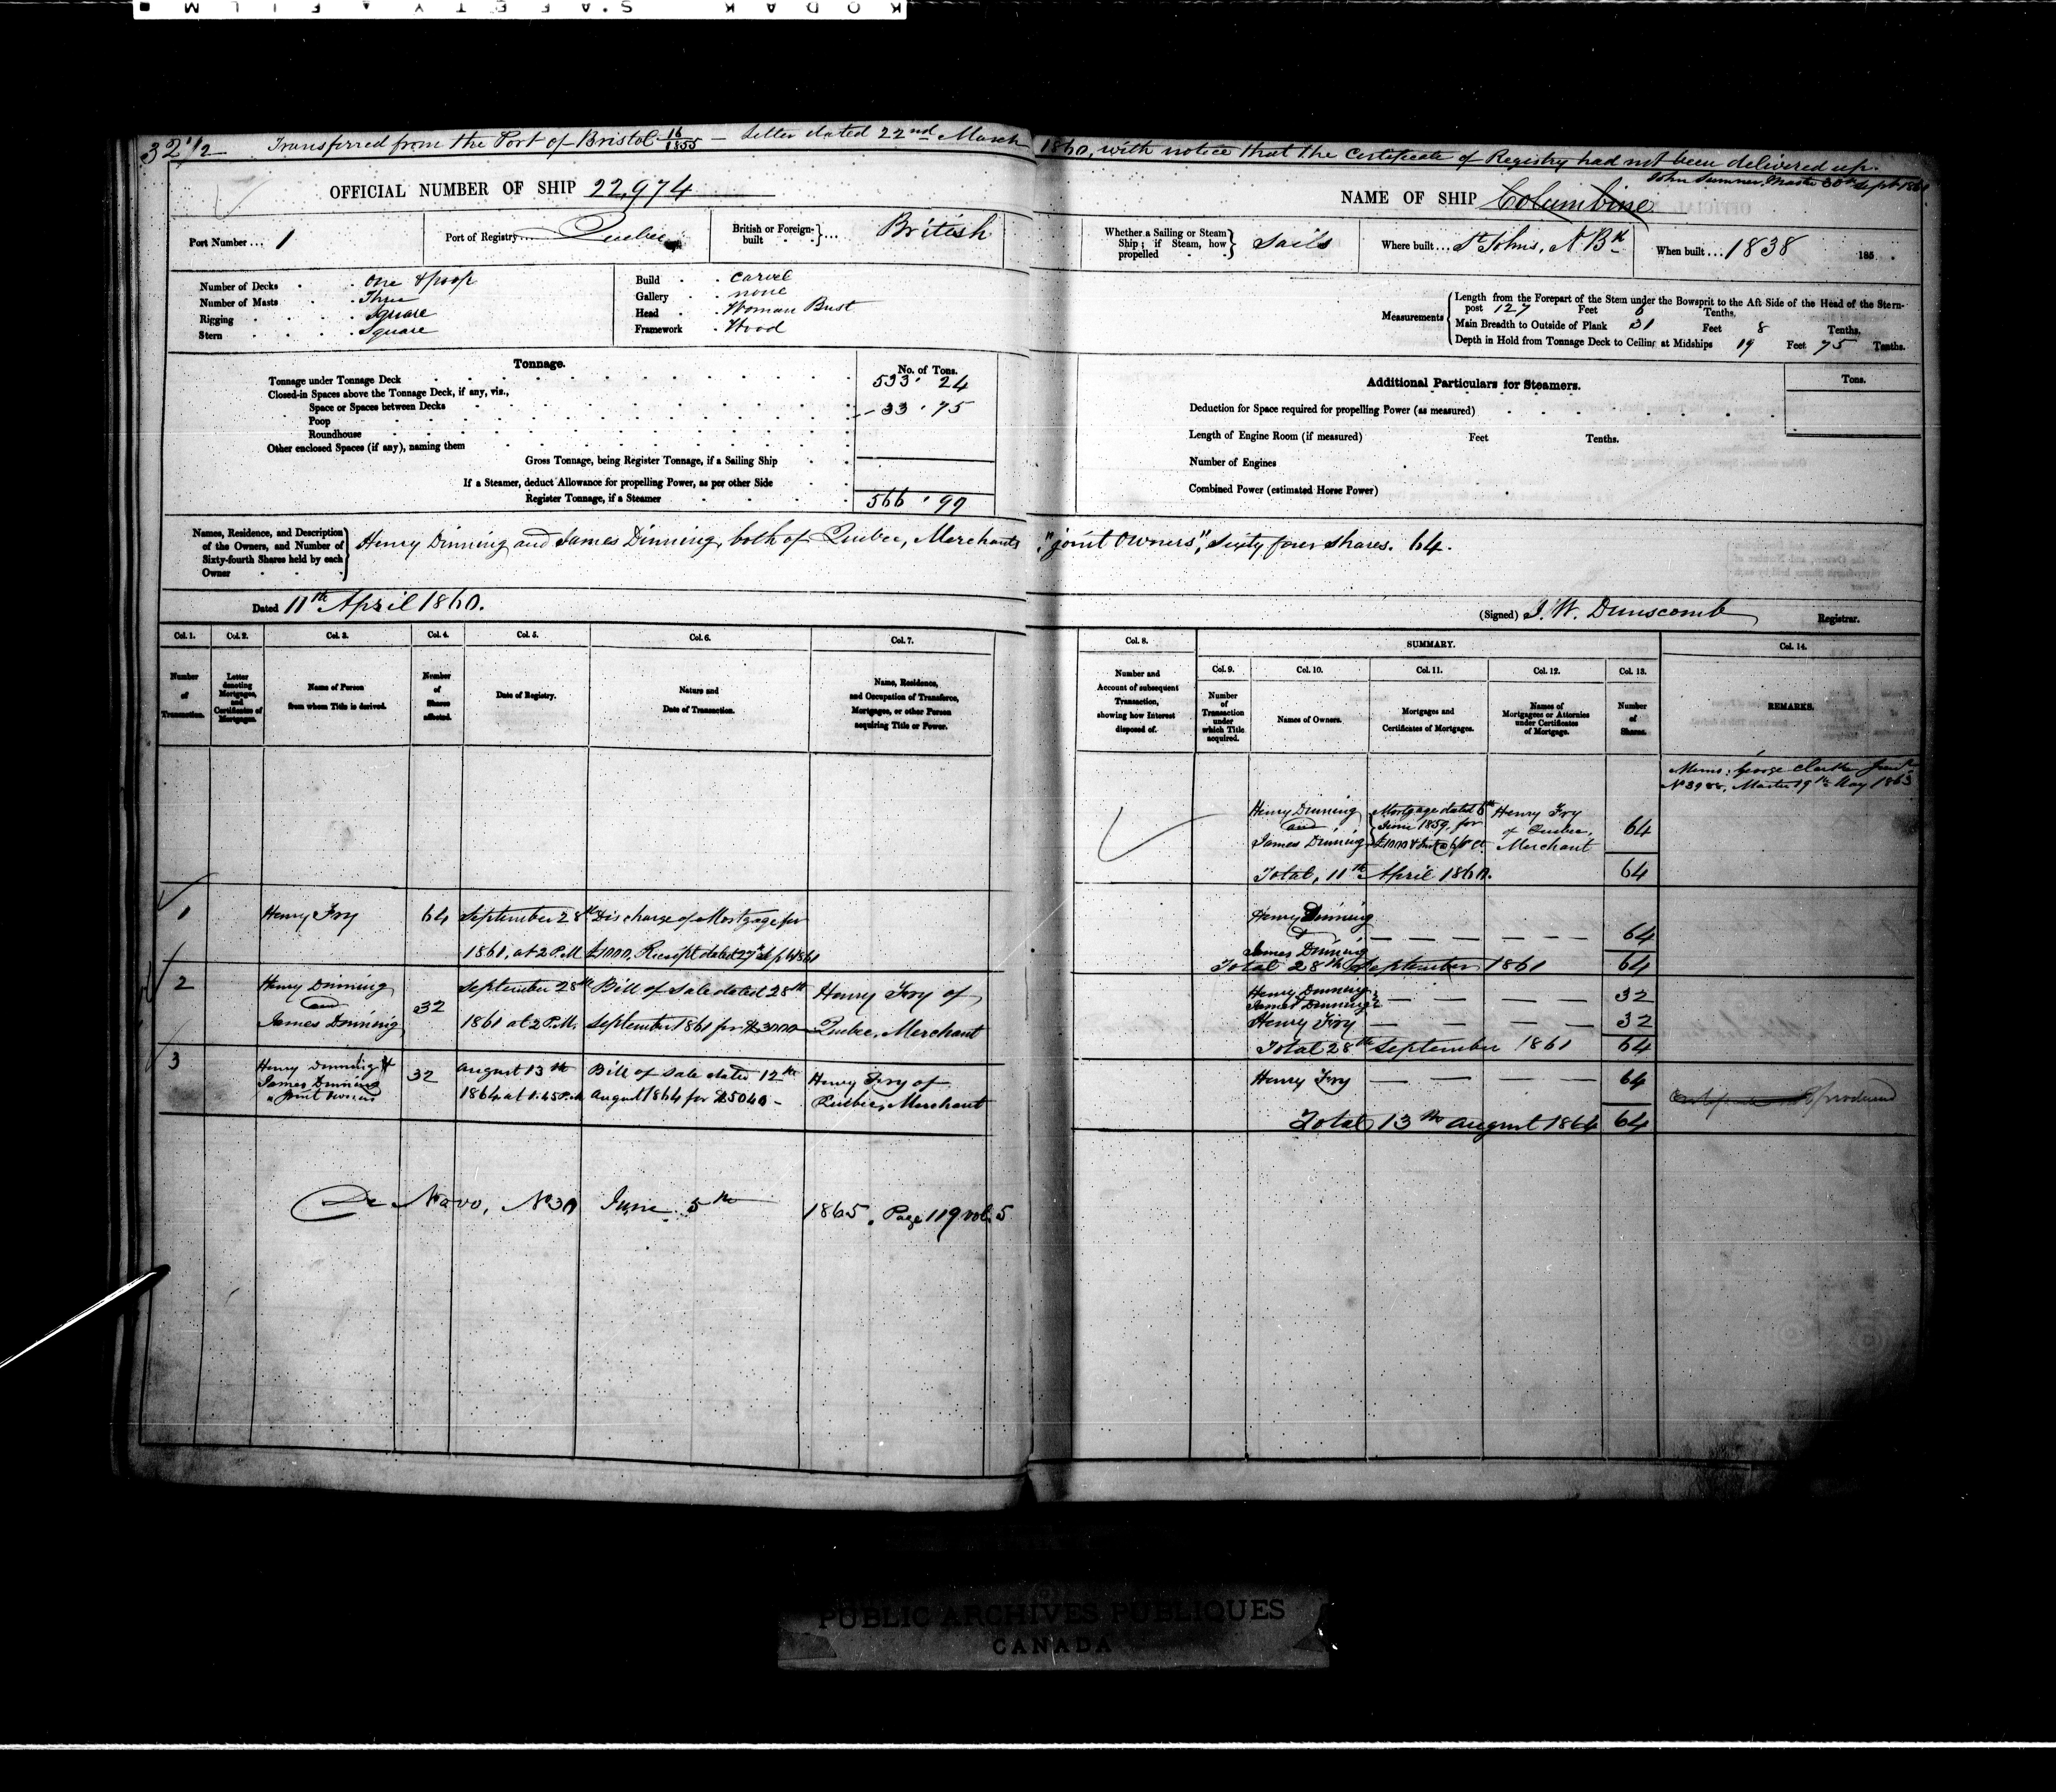 KODAK SAFETY FILM
32 1/2 Transferred from the Port of Bristol 16/1855 — Letter dated 22nd March 1860, with notice that the Certificate of Registry had not been delivered up.
John Sumner, Master 30th Sept 1861
OFFICIAL NUMBER OF SHIP 22,974
NAME OF SHIP Columbine
Port Number ... 1
Port of Registry ... Quebec
British or Foreign-built ... British
Whether a Sailing or Steam Ship; if Steam, how propelled Sails
Where built ... St Johns, N. Bk
When built ... 1838 185
Number of Decks . . One & poop
Number of Masts . . Three
Rigging . . . Square
Stern . . . Square
Build . . Carvel
Gallery . . none
Head . . Woman Bust
Framework . Wood
Measurements
Length from the Forepart of the Stem under the Bowsprit to the Aft Side of the Head of the Stern-
post 127 Feet 6 Tenths.
Main Breadth to Outside of Plank 31 Feet 8 Tenths.
Depth in Hold from Tonnage Deck to Ceiling at Midships 19 Feet 75 Tenths.
Tonnage.
No. of Tons.
Tonnage under Tonnage Deck 533 . 24
Closed-in Spaces above the Tonnage Deck, if any, viz.,
Space or Spaces between Decks - 33 . 75
Poop
Roundhouse
Other enclosed Spaces (if any), naming them
Gross Tonnage, being Register Tonnage, if a Sailing Ship
If a Steamer, deduct Allowance for propelling Power, as per other Side
Register Tonnage, if a Steamer 566 . 99
Additional Particulars for Steamers.
Tons.
Deduction for Space required for propelling Power (as measured)
Length of Engine Room (if measured) Feet Tenths.
Number of Engines
Combined Power (estimated Horse Power)
Names, Residence, and Description
of the Owners, and Number of
Sixty-fourth Shares held by each
Owner
Henry Dinning and James Dinning, both of Quebec, Merchants, "joint Owners", Sixty four shares. 64.
Dated 11th April 1860.
(Signed) J. W. Dunscomb Registrar.
Col. 1. Col. 2. Col. 3. Col. 4. Col. 5. Col. 6. Col. 7.
Number of Transaction.
Letter denoting Mortgages, and Certificates of Mortgages.
Name of Person from whom Title is derived.
Number of Shares affected.
Date of Registry.
Nature and Date of Transaction.
Name, Residence, and Occupation of Transferee, Mortgagee, or other Person acquiring Title or Power.
Col. 8. SUMMARY. Col. 14.
Col. 9. Col. 10. Col. 11. Col. 12. Col. 13.
Number and Account of subsequent Transaction, showing how Interest disposed of.
Number of Transaction under which Title acquired.
Names of Owners.
Mortgages and Certificates of Mortgages.
Names of Mortgagees or Attornies under Certificates of Mortgage.
Number of Shares.
REMARKS.
Memo: George Clark
Master 19th May 1863
Henry Dinning Mortgage dated 6th Henry Fry
and June 1859, for of Quebec, 64
James Dinning £1000 Merchant
Total, 11th April 1860. 64
1 Henry Fry 64 September 28th Discharge of Mortgage for
1861, at 2 P.M. £1000, Receipt dated 27th Sept 1861
Henry Dinning
& — — — — 64
James Dinning
Total 28th September 1861 64
2 Henry Dinning September 28th Bill of Sale dated 28th Henry Fry of
and 32
James Dinning 1861 at 2 P.M. September 1861 for $3000 Quebec, Merchant
Henry Dinning
James Dinning — — — — 32
Henry Fry — — — — 32
Total 28th September 1861 64
3 Henry Dinning & 32 August 13th Bill of Sale dated 12th Henry Fry of
James Dinning 1864 at 1.45 P.M. August 1864 for $5040 - Quebec, Merchant
Joint Owners
Henry Fry — — — — 64
produced
Total 13th August 1864 64
De Novo, No 30 June 5th 1865. Page 119 vol. 5
PUBLIC ARCHIVES PUBLIQUES
CANADA